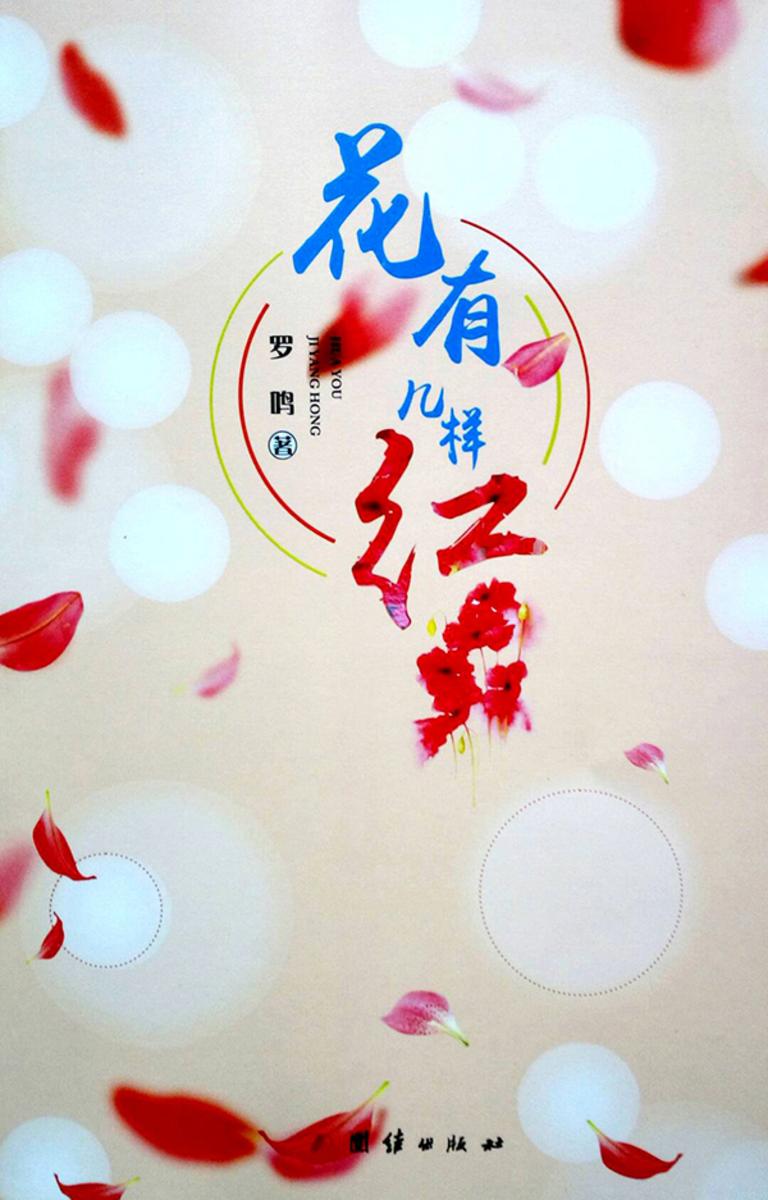 花有几样红
HUA YOU
JI YANG HONG
罗鸣 著
团结出版社